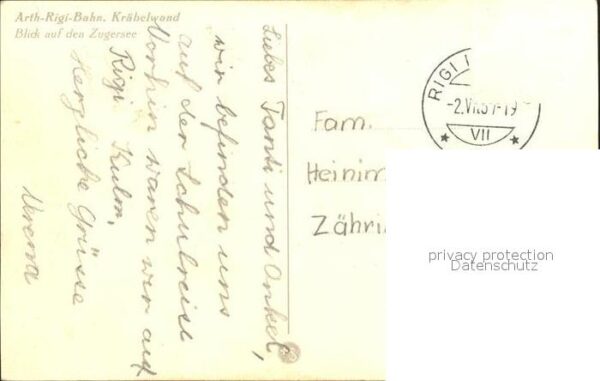 Arth-Rigi-Bahn. Kräbelwand
Blick auf den Zugersee
Liebes Tanti und Onkel,
wir befinden uns
auf der Schulreise
Vorhin waren wir auf
Rigi Kulm.
Herzliche Grüsse
Verena
RIGI
VII
Fam.
Heinim
Zähri
privacy protection
Datenschutz